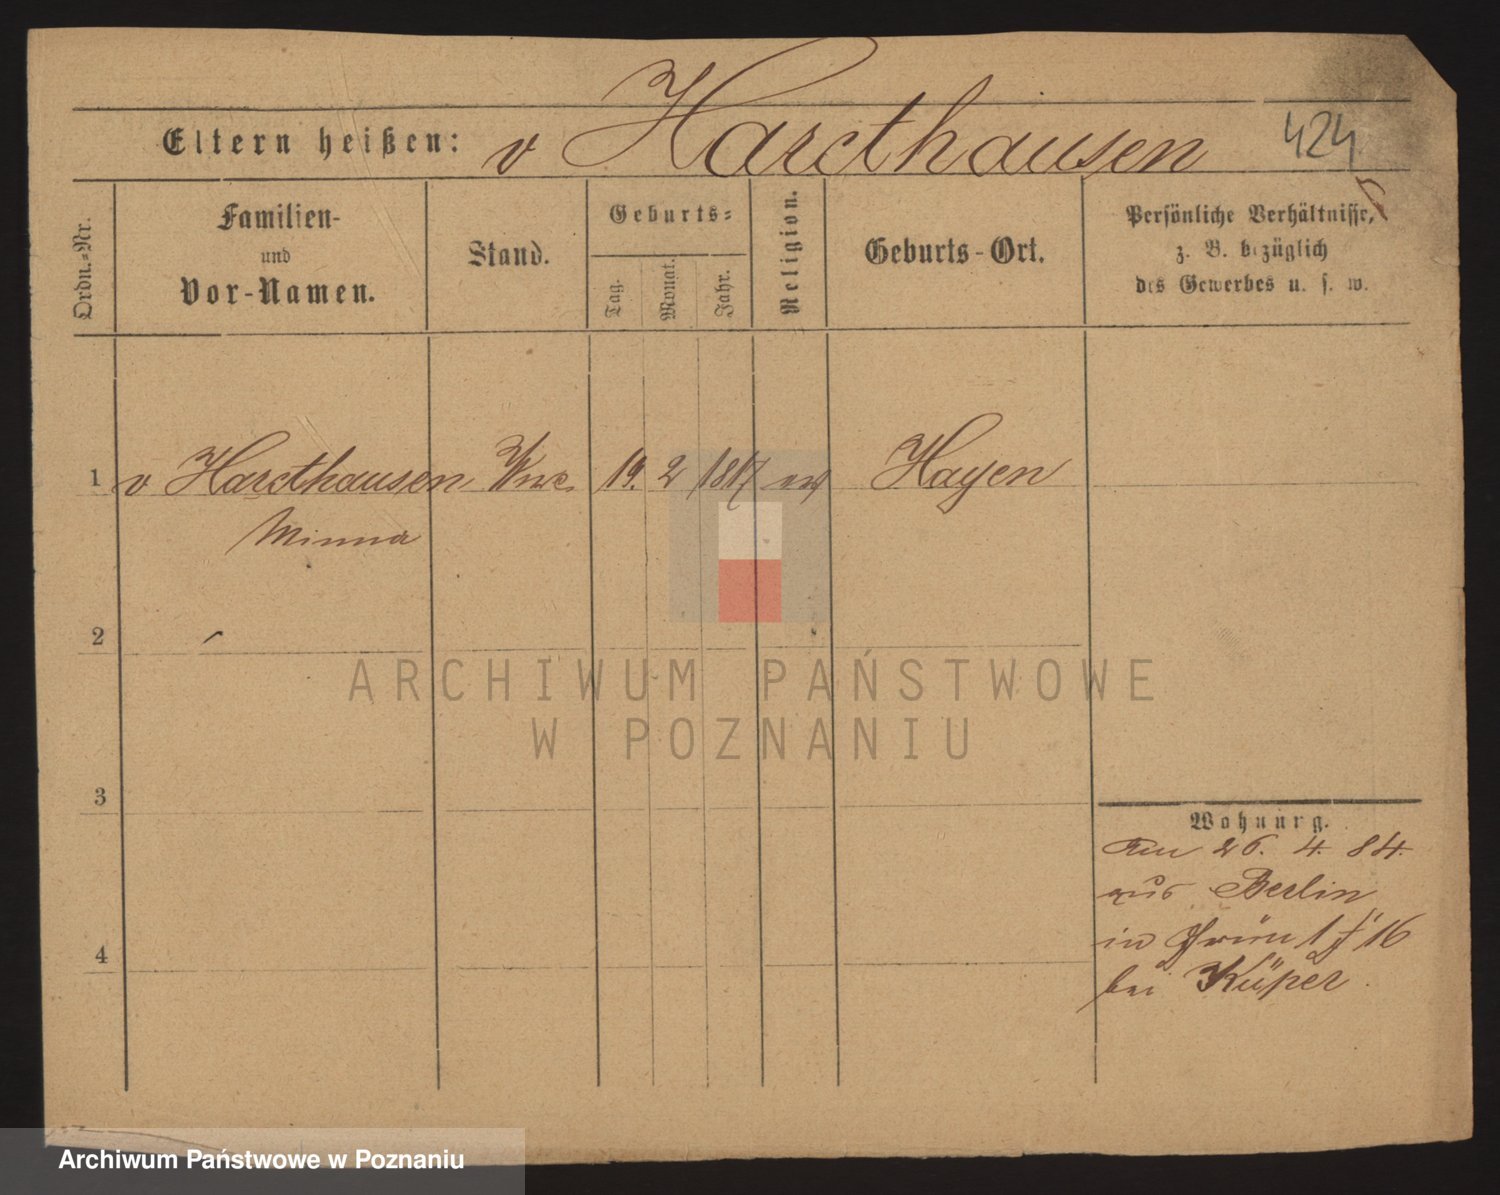 424
Eltern heißen: v Harcthausen
Ordn.-Nr.
Familien-
und
Vor-Namen.
Stand.
Geburts-
Tag.
Monat.
Jahr.
Religion.
Geburts-Ort.
Persönliche Verhältnisse,
z. B. bezüglich
des Gewerbes u. s. w.
1 v Harcthausen Wwe. 19. 2 1817 ev Hayen
Minna
2
3
4
Wohnung.
Am 26. 4. 84.
aus Berlin
in 16
bei Küper
ARCHIWUM PAŃSTWOWE
W POZNANIU
Archiwum Państwowe w Poznaniu